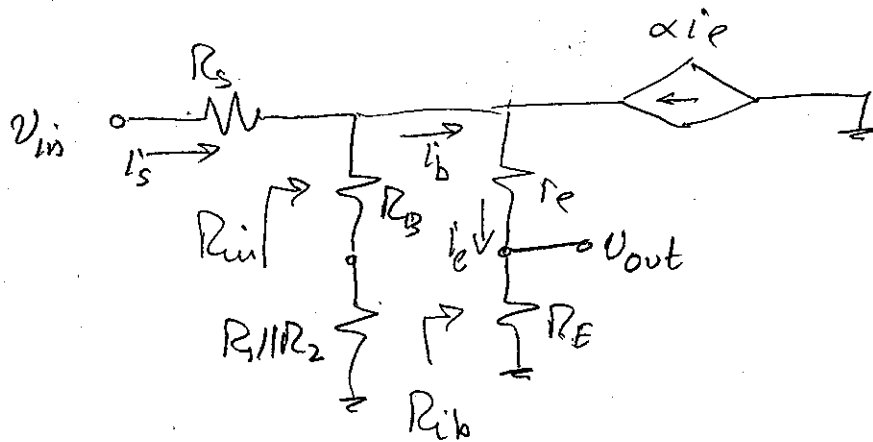 αi_e
R_s
v_in
i_s
i_b
R_in
R_B
r_e
i_e
v_out
R_1||R_2
R_E
R_ib